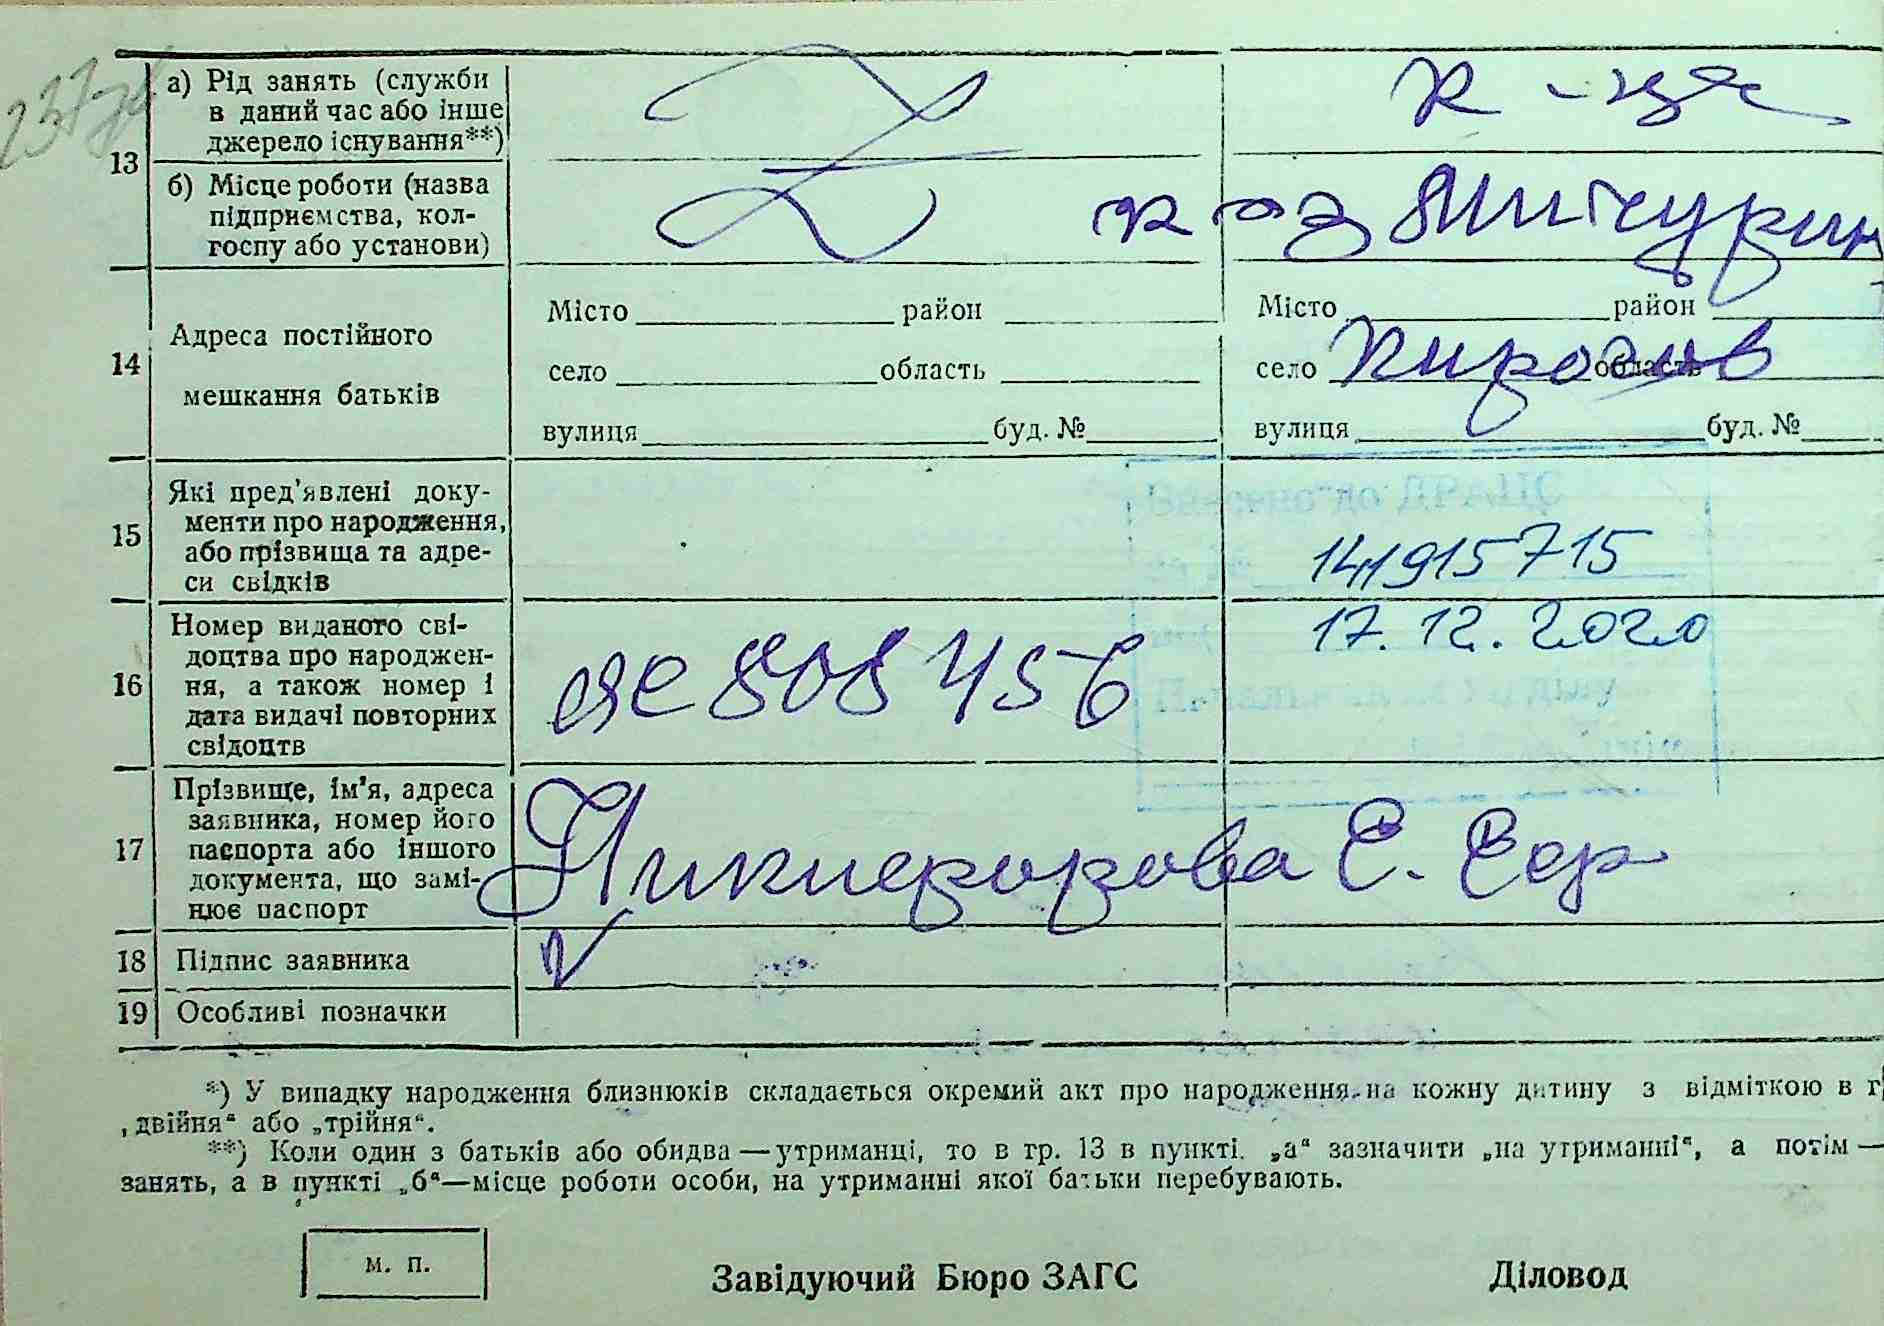 13
а) Рід занять (служби
в даний час або інше
джерело існування**)
к-ця
б) Місце роботи (назва
підприємства, кол-
госпу або установи)
к-оз Мичурин
14
Адреса постійного
мешкання батьків
Місто район
село область
вулиця буд. №
Місто район
село Пирогів область
вулиця буд. №
15
Які пред'явлені доку-
менти про народження,
або прізвища та адре-
си свідків
141915715
16
Номер виданого сві-
доцтва про народжен-
ня, а також номер і
дата видачі повторних
свідоцтв
ЯЄ 808456
17.12.2020
17
Прізвище, ім'я, адреса
заявника, номер його
паспорта або іншого
документа, що замі-
нює паспорт
Никифорова Є.
18 Підпис заявника
19 Особливі позначки
*) У випадку народження близнюків складається окремий акт про народження на кожну дитину з відміткою в г
„двійня“ або „трійня“.
**) Коли один з батьків або обидва—утриманці, то в гр. 13 в пункті „а“ зазначити „на утриманні“, а потім—
занять, а в пункті „б“—місце роботи особи, на утриманні якої батьки перебувають.
м. п.
Завідуючий Бюро ЗАГС
Діловод